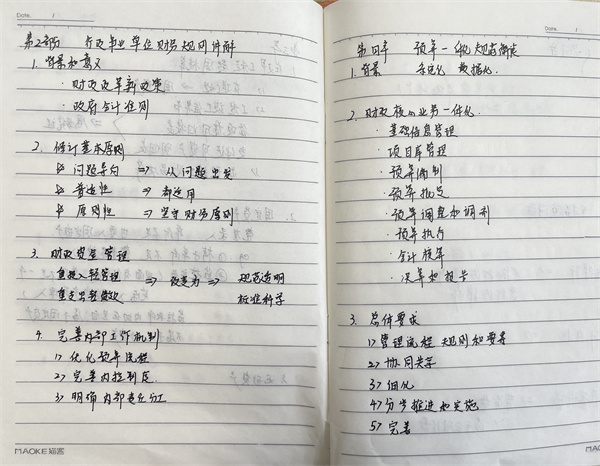 Date. /
第二部分 行政事业单位财务规则详解
1. 背景和意义
· 财政改革新政策
· 政府会计准则
2. 修订基本原则
问题导向 ⇒ 从问题出发
普适性 ⇒ 都适用
原则性 ⇒ 坚守财务原则
3. 财政资金管理
重投入轻管理 ⇒ 改变为 ⇒ 规范透明
重支出轻绩效 标准科学
4. 完善内部工作机制
1> 优化预算流程
2> 完善内控制度
3> 明确内部责任分工
MAOKE 猫客
Date. /
第四章 预算一体化规范
1. 背景 信息化 数据化.
2. 财政核心业务一体化.
· 基础信息管理
· 项目库管理
· 预算编制
· 预算批复
· 预算调整和调剂
· 预算执行
· 会计核算
· 决算和报告
3. 总体要求
1> 管理流程 规则和要素
2> 协同共享
3> 细化
4> 分步推进和实施
5> 完善
MAOKE 猫客